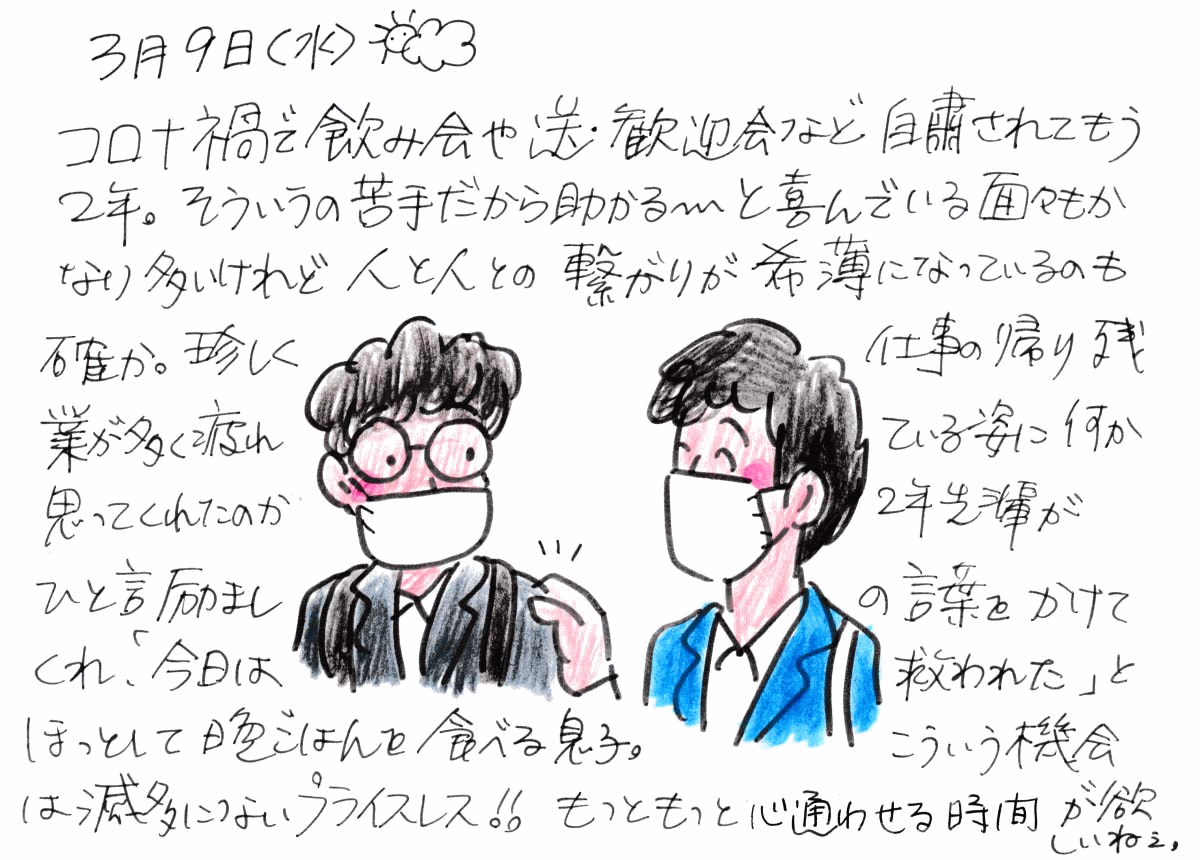 3月9日(水)
コロナ禍で飲み会や送・歓迎会など自粛されてもう
2年。そういうの苦手だから助かる〜と喜んでいる面々もか
なり多いけれど人と人との繋がりが希薄になっているのも
確か。珍しく仕事の帰り残
業が多く疲れている姿に何か
思ってくれたのか2年先輩が
ひと言励ましの言葉をかけて
くれ、「今日は救われた」と
ほっとして晩ごはんを食べる息子。こういう機会
は滅多にないプライスレス!!もっともっと心通わせる時間が欲
しいねぇ。